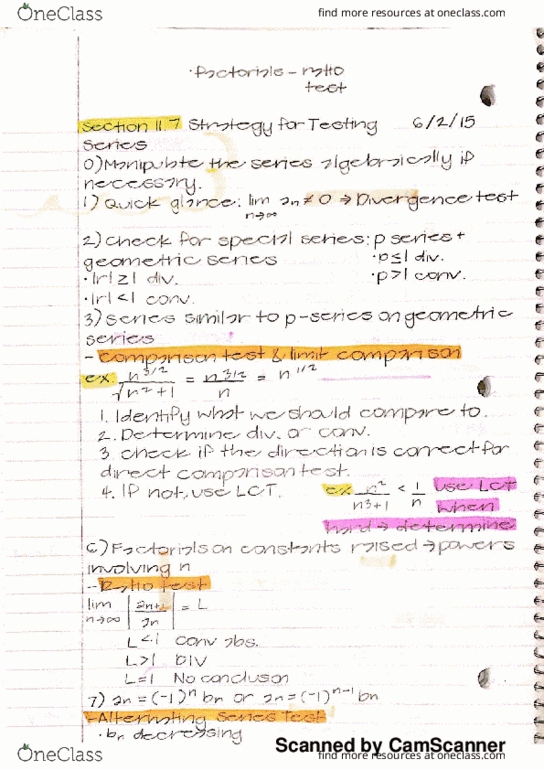 OneClass
find more resources at oneclass.com
·Factorials – ratio
test
Section 11.7 Strategy for Testing 6/2/15
Series
0) Manipulate the series algebraically if
necessary.
1) Quick glance: lim an ≠ 0 → Divergence test
n→∞
2) Check for special series: p series +
geometric series ·p≤1 div.
·|r|≥1 div. ·p>1 conv.
·|r|<1 conv.
3) Series similar to p-series or geometric
series
– Comparison test & limit comparison
ex. n^3/2 / √n²+1 = n^3/2 / n = n^1/2
1. Identify what we should compare to.
2. Determine div. or conv.
3. Check if the direction is correct for
direct comparison test.
4. If not, use LCT. ex. n² / n3+1 < 1/n use LCT
when
hard → determine
6) Factorials or constants raised → powers
involving n
– Ratio test
lim |an+1 / an| = L
n→∞
L<1 conv abs.
L>1 DIV
L=1 No conclusion
7) an = (-1)^n bn or an = (-1)^n-1 bn
–Alternating Series Test
·bn decreasing
Scanned by CamScanner
OneClass
find more resources at oneclass.com